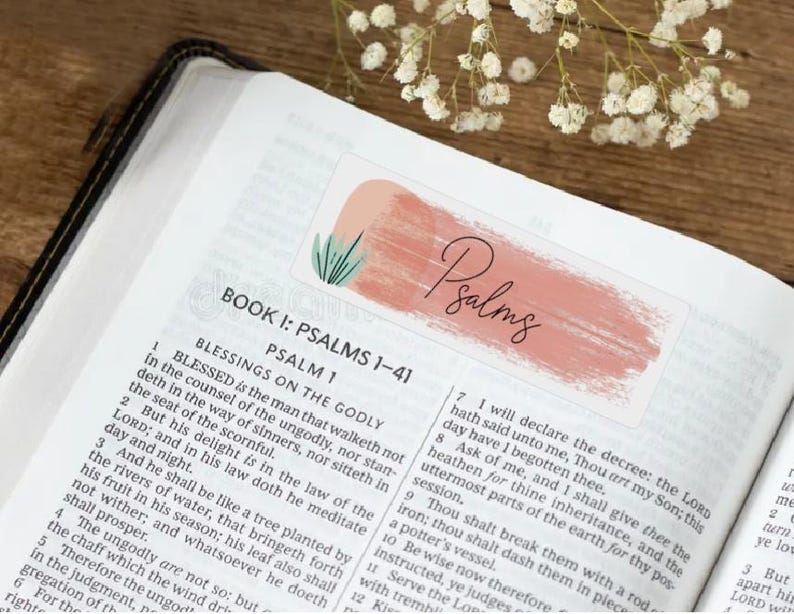 Psalms
BOOK I: PSALMS 1–41
PSALM 1
BLESSINGS ON THE GODLY
1 BLESSED is the man that walketh not
in the counsel of the ungodly, nor stan-
deth in the way of sinners, nor sitteth in
the seat of the scornful.
2 But his delight is in the law of the
LORD; and in his law doth he meditate
day and night.
3 And he shall be like a tree planted by
the rivers of water, that bringeth forth
his fruit in his season; his leaf also shall
not wither; and whatsoever he doeth
shall prosper.
4 The ungodly are not so: but
the chaff which the wind
5 Therefore the ungod
in the judgment, no
gregation of the
6 For the
right
7 I will declare the decree: the LORD
hath said unto me, Thou art my Son; this
day have I begotten thee.
8 Ask of me, and I shall give thee the
heathen for thine inheritance, and the
uttermost parts of the earth for thy pos-
session.
9 Thou shalt break them with a rod
iron; thou shalt dash them in piec
a potter's vessel.
10 Be wise now therefore
instructed, ye judges o
11 Serve the LOR
with trembl
12 Kiss
2
turn
ye lov
3 But
apart hi
LORD w